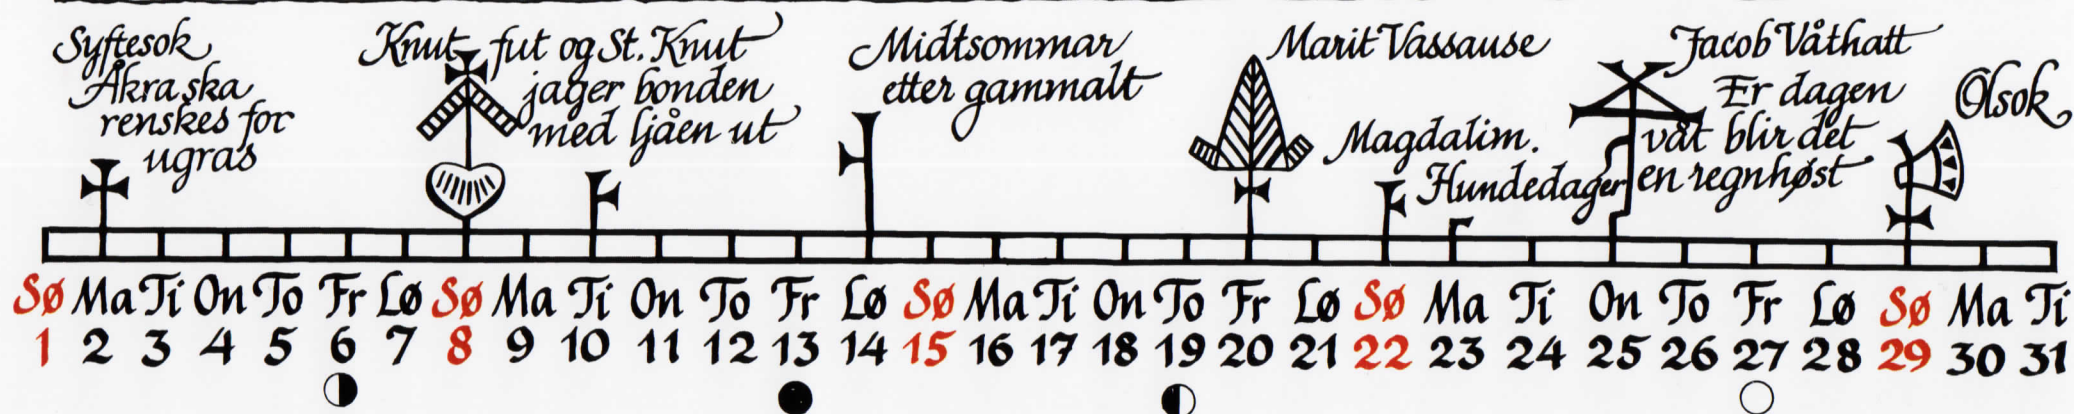 Syftesok
Åkra ska
renskes for
ugras
Knut fut og St. Knut
jager bonden
med ljåen ut
Midtsommar
etter gammalt
Marit Vassause
Magdalim.
Hundedager
Jacob Våthatt
Er dagen
våt blir det
en regnhøst
Olsok
Sø Ma Ti On To Fr Lø Sø Ma Ti On To Fr Lø Sø Ma Ti On To Fr Lø Sø Ma Ti On To Fr Lø Sø Ma Ti
1 2 3 4 5 6 7 8 9 10 11 12 13 14 15 16 17 18 19 20 21 22 23 24 25 26 27 28 29 30 31